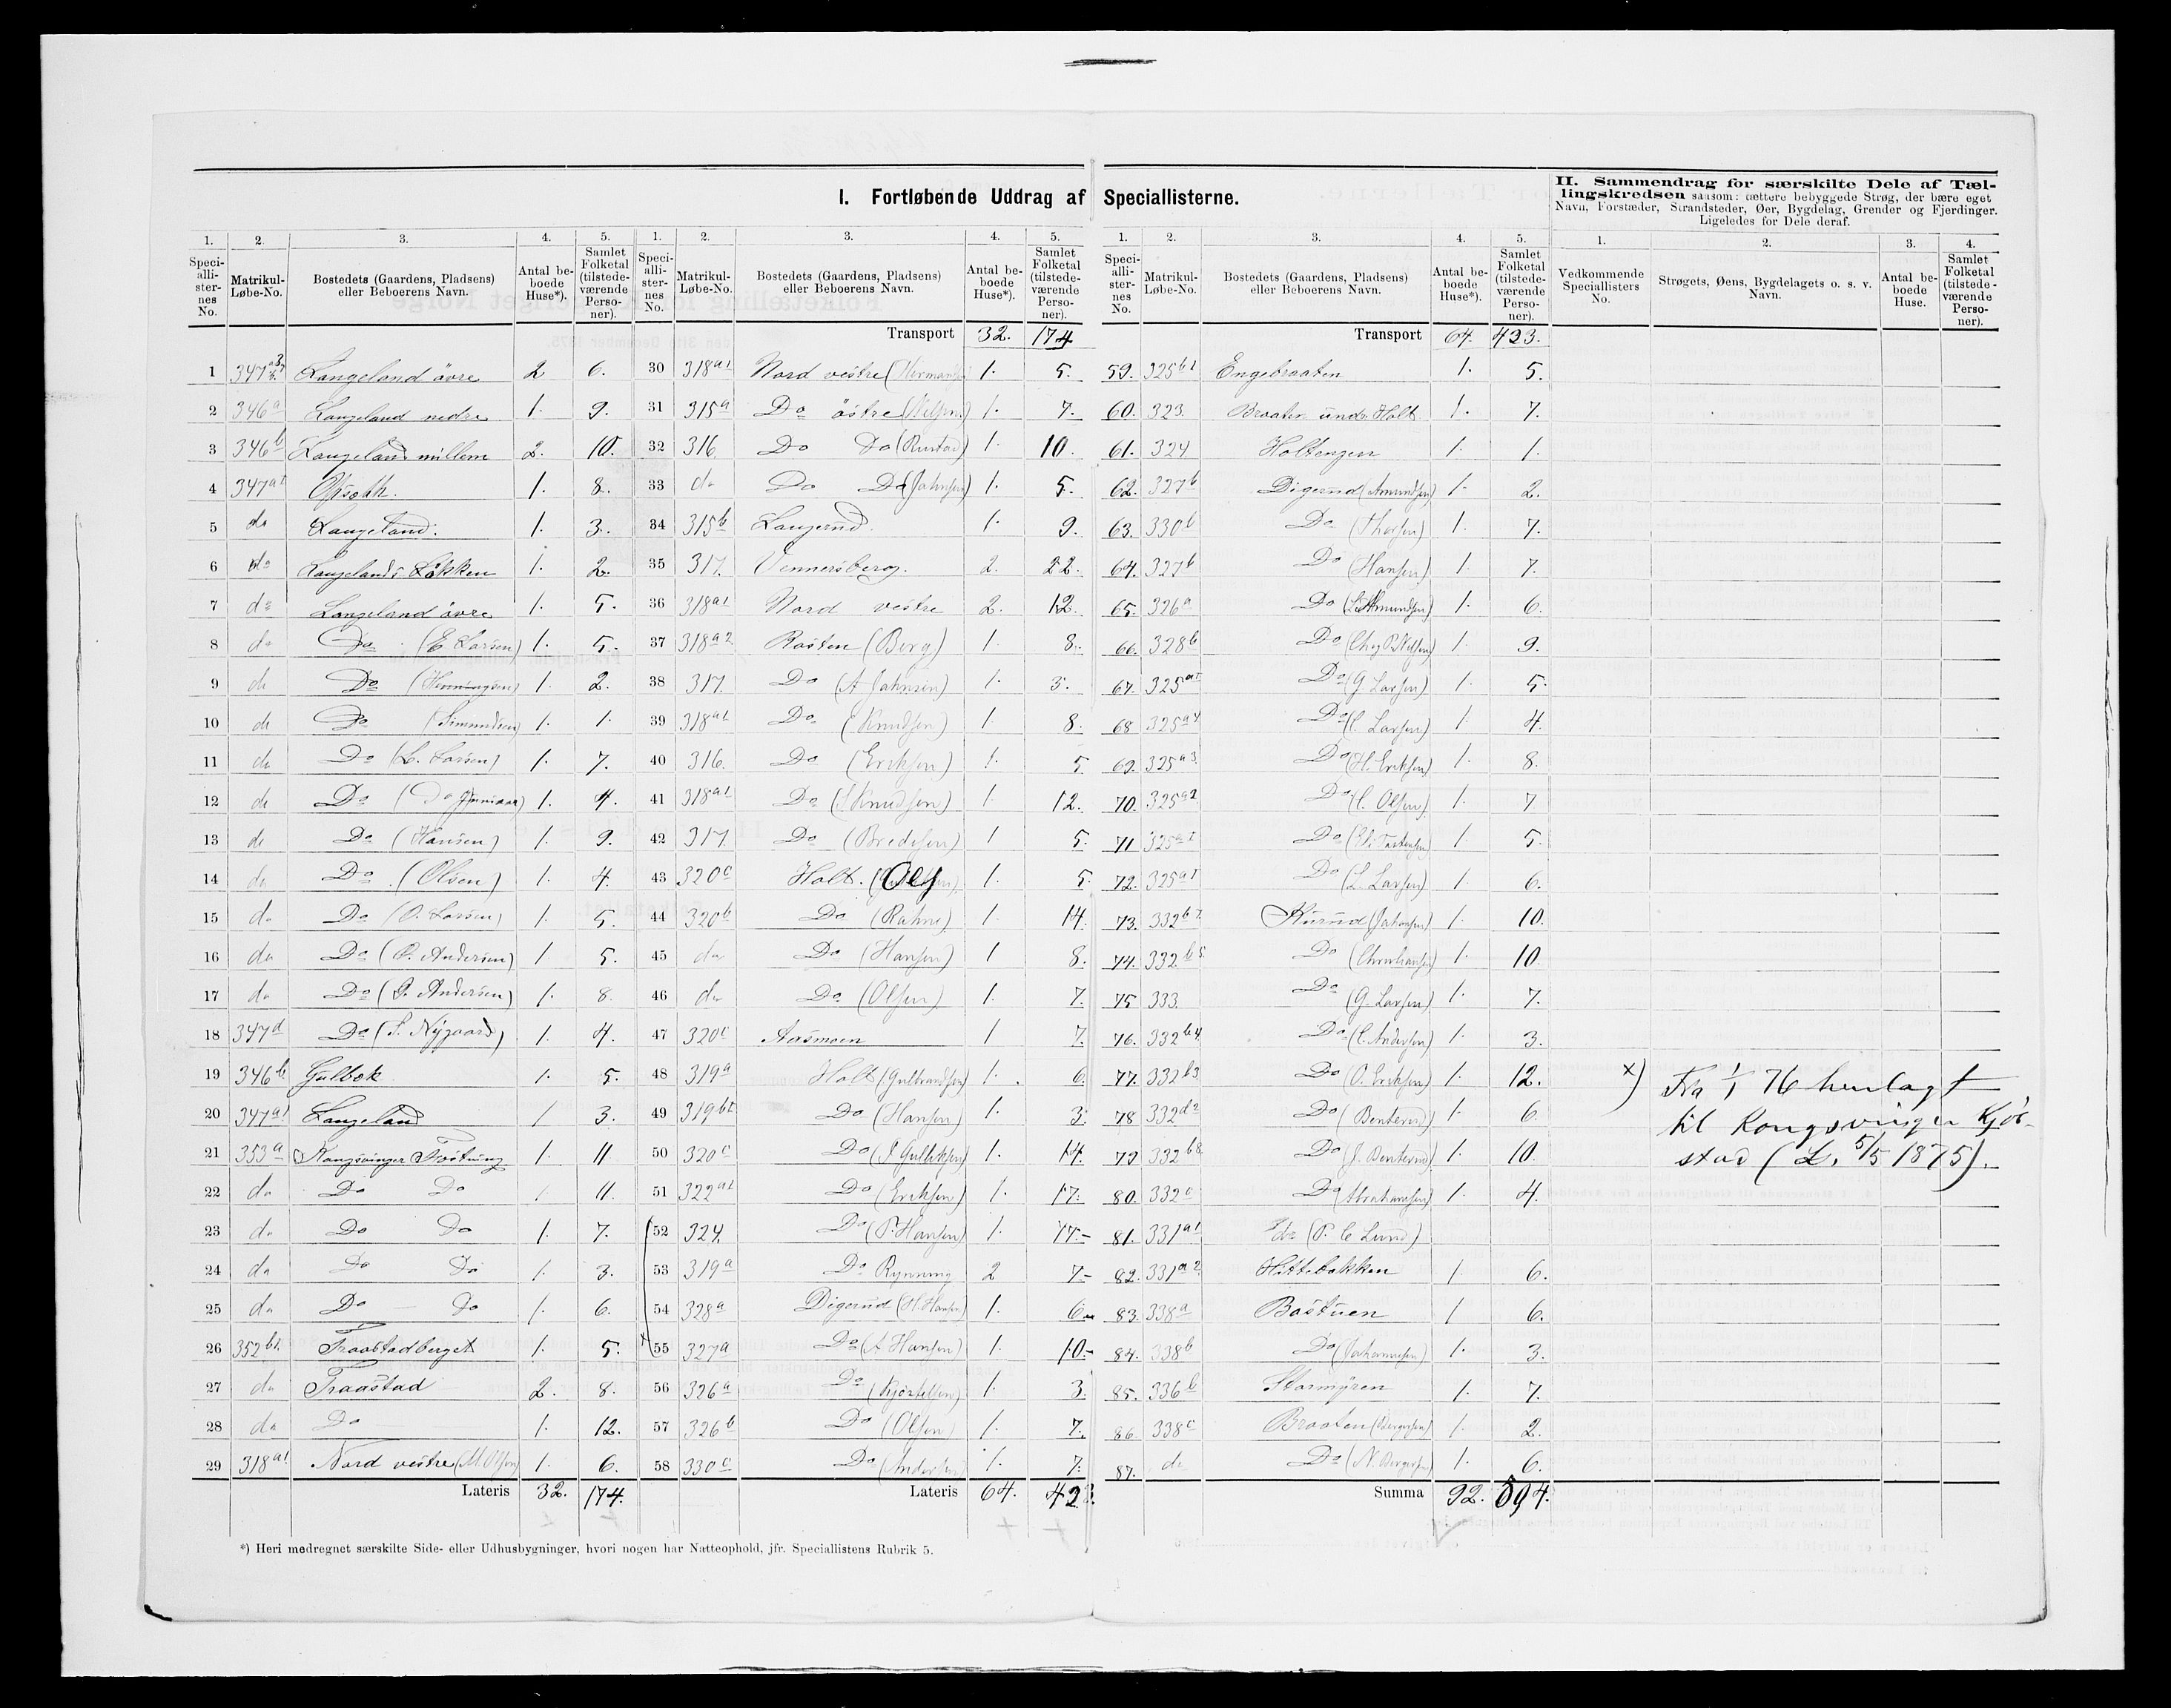 I. Fortløbende Uddrag af Speciallisterne.
II. Sammendrag for særskilte Dele af Tæl-
lingskredsen saasom: tættere bebyggede Strøg, der bære eget
Navn, Forstæder, Strandsteder, Øer, Bygdelag, Grender og Fjerdinger.
Ligeledes for Dele deraf.
1. 2. 3. 4. 5. 1. 2. 3. 4. 5. 1. 2. 3. 4. 5. 1. 2. 3. 4.
Speci-alli-ster-nes No. Matrikul-Løbe-No. Bostedets (Gaardens, Pladsens) eller Beboerens Navn. Antal be-boede Huse*). Samlet Folketal (tilstede-værende Perso-ner).
Speci-alli-ster-nes No. Matrikul-Løbe-No. Bostedets (Gaardens, Pladsens) eller Beboerens Navn. Antal be-boede Huse*). Samlet Folketal (tilstede-værende Perso-ner).
Speci-alli-ster-nes No. Matrikul-Løbe-No. Bostedets (Gaardens, Pladsens) eller Beboerens Navn. Antal be-boede Huse*). Samlet Folketal (tilstede-værende Perso-ner).
Vedkommende Speciallisters No. Strøgets, Øens, Bygdelagets o. s. v. Navn. Antal be-boede Huse. Samlet Folketal (tilstede-værende Perso-ner).
1 Langeland övre 2 6.
2 346a Langeland nedre 1. 9.
3 346b Langeland millem 2. 10.
4 347a1 1. 8.
5 do Langeland. 1. 3.
6 do Langelands Løkken 1. 2.
7 do Langeland övre 1. 5.
8 do Do (E Larsen) 1. 5.
9 do Do (Henningsen) 1. 2.
10 do Do (Simundsen) 1. 1.
11 do Do (L. Larsen) 1. 7.
12 do Do (Do 1. 4.
13 do Do (Hansen) 1. 9.
14 do Do (Olsen) 1. 4.
15 do Do (O. Larsen) 1. 5.
16 do Do (O. Andersen) 1. 5.
17 do Do (A. Andersen) 1. 8.
18 347d Do (S. Nygaard) 1. 4.
19 346b Gulbek 1. 5.
20 347a1 Langeland 1 3.
21 353a Kongsvinger Fæstning 1. 11
22 do Do Do 1 11.
23 do Do Do 1. 7.
24 do Do Do 1. 3.
25 do Do Do 1. 6.
26 352b1 Traastadberget 1. 5.
27 do Traastad 2. 8.
28 do Do 1. 12.
29 318a1 Nord vestre (M. Olsen) 1. 6.
Lateris 32. 174.
Transport 32. 174
30 318a1 Nord vestre 1. 5.
31 315a Do östre (Nilsen) 1. 7.
32 316 Do Do (Rustad) 1 10.
33 do Do Do (Johnsen) 1. 5.
34 315b Langerud 1. 9.
35 317. Vennersberg. 2. 22.
36 318a1 Nord vestre 2. 12.
37 318a2 Rasten (Berg) 1 8.
38 317. Do (A Johnsen) 1. 3.
39 318a1 Do (Knudsen) 1. 8.
40 316. Do (Eriksen) 1. 5
41 318a1 Do (Knudsen) 1 12.
42 317. Do (Bredesen) 1 5.
43 320c Holt. 1. 5.
44 320b Do (Rahne) 1 14.
45 do Do (Hansen) 1 8.
46 do Do (Olsen) 1. 7.
47 320c Aasmoen 1 7.
48 319a Holt (Gulbrandsen) 1. 6.
49 319b1 Do (Hansen) 1. 3.
50 320c Do (Gulliksen) 1. 14.
51 322a1 Do (Eriksen) 1. 17.
52 324. Do (P. Hansen) 1.
53 319a Do Rynning 2 7-
54 328a Digerud (H. Hansen) 1. 6-
55 327a Do (A Hansen) 1. 10-
56 326a Do 1. 3.
57 326b Do (Olsen) 1. 7.
58 330c Do (Andersen) 1. 7.
Lateris 64. 423.
Transport 64. 423.
59. 325b1 Engebraaten 1. 5.
60. 323. Braaten under Holt 1. 7.
61. 324 Holtengen 1. 1.
62. 327b Digerud (Amundsen) 1. 2.
63. 330b Do (Thorsen) 1. 7.
64. 327b Do (Hansen) 1. 7.
65. 326a Do 1. 6.
66. 328b Do 1. 9.
67. 325a1 Do (G. Larsen) 1. 5.
68 325a4 Do (C. Larsen) 1. 4.
69. 325a3 Do (H. Eriksen) 1. 8.
70. 325a2 Do (C. Olsen) 1. 7
71 325a1 Do 1. 5.
72. 325a1 Do (L. Larsen) 1. 6.
73. 332b Kurud (Johansen) 1. 10.
74. 332b5 Do (Christiansen) 1. 10
75 333. Do (G. Larsen) 1. 7.
76. 332b4 Do (C. Andersen) 1. 3.
77. 332b3 Do (O. Eriksen) 1. 12.
78 332d2 Do (Benterud) 1. 6.
79 332b8 Do (J. Benterud) 1. 10.
80. 332c Do (Abrahamsen) 1. 4.
81. 331a1 (P. C Lund)
82. 331a2 Hættebakken 1. 6.
83. 338a Bastuen 1 6.
84. 338b Do (Johannesen) 1. 3.
85. 336b Stormyren 1. 7.
86. 338c Braaten 1. 2.
87. do Do (N. Bergersen) 1. 6.
Summa 92. 594.
x) Fra 1/1 76 henlagt
til Kongsvinger Kjøb-
stad (L. 5/5 1875).
*) Heri medregnet særskilte Side- eller Udhusbygninger, hvori nogen har Natteophold, jfr. Speciallistens Rubrik 5.